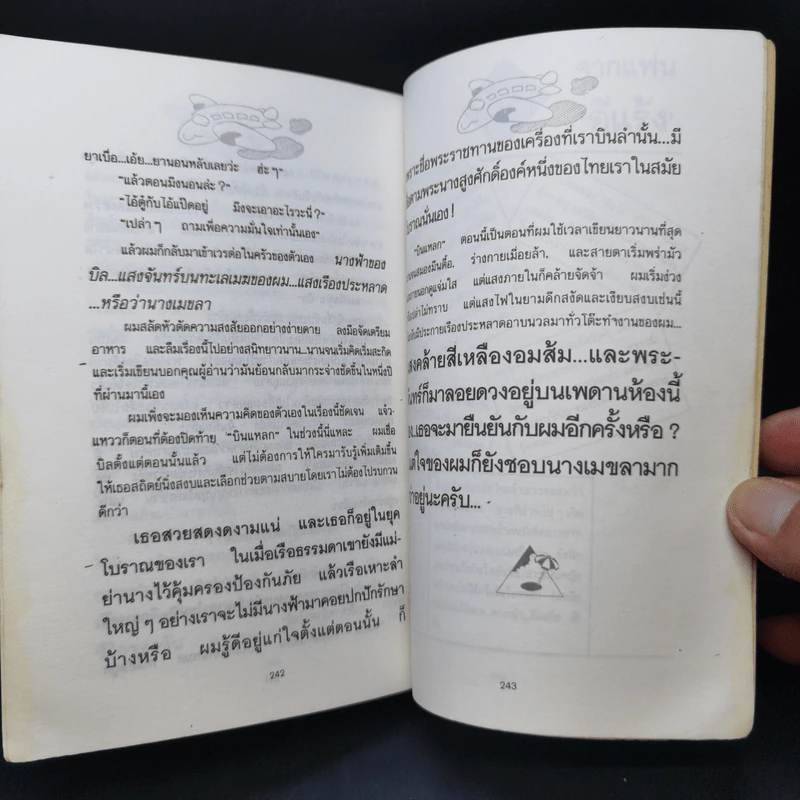 ยาเบื่อ...เอ้ย...ยานอนหลับเลยว่ะ ฮ่ะๆ"
"แล้วตอนมิงนอนล่ะ?"
"ไอ้ตู้กับไอ้แป๊ดอยู่ มิงจะเอาอะไรวะนี่?"
"เปล่าๆ ถามเพื่อความมั่นใจเท่านั้นเอง"
แล้วผมก็กลับมาเข้าเวรต่อในครัวของตัวเอง นางฟ้าของ
บิล...แสงจันทร์บนทะเลเมฆของผม...แสงเรืองประหลาด
...หรือว่านางเมขลา
ผมสลัดหัวตัดความสงสัยออกอย่างง่ายดาย ลงมือจัดเตรียม
อาหาร และลืมเรื่องนี้ไปอย่างสนิทยาวนาน...นานจนเริ่มคิดเริ่มสะกิด
และเริ่มเขียนบอกคุณผู้อ่านว่ามันย้อนกลับมากระจ่างชัดขึ้นในหนึ่งปี
ที่ผ่านมานี้เอง
ผมเพิ่งจะมองเห็นความคิดของตัวเองในเรื่องนี้ชัดเจน แจ๋ว-
แหววก็ตอนที่ต้องปิดท้าย "บินแหลก" ในช่วงนี้นี่แหละ ผมเชื่อ
บิลตั้งแต่ตอนนั้นแล้ว แต่ไม่ต้องการให้ใครมารับรู้เพิ่มเติมขึ้น
ให้เธอสถิตย์นิ่งสงบและเลือกช่วยตามสบายโดยเราไม่ต้องไปรบกวน
ดีกว่า
เธอสวยสดงดงามแน่ และเธอก็อยู่ในยุค
โบราณของเรา ในเมื่อเรือธรรมดาเขายังมีแม่-
ย่านางไว้คุ้มครองป้องกันภัย แล้วเรือเหาะลำ
ใหญ่ๆ อย่างเราจะไม่มีนางฟ้ามาคอยปกปักรักษา
บ้างหรือ ผมรู้ดีอยู่แก่ใจตั้งแต่ตอนนั้น ก็
242
เพราะชื่อพระราชทานของเครื่องที่เราบินลำนั้น...มี
ตามพระนางสูงศักดิ์องค์หนึ่งของไทยเราในสมัย
โบราณนั่นเอง!
"บินแหลก" ตอนนี้เป็นตอนที่ผมใช้เวลาเขียนยาวนานที่สุด
สมองมึนตื้อ, ร่างกายเมื่อยล้า, และสายตาเริ่มพร่ามัว
ภายนอกดูแจ่มใส แต่แสงภายในก็คล้ายจัดจ้า ผมเริ่มง่วง
หรือเปล่าไม่ทราบ แต่แสงไฟในยามดึกสงัดและเงียบสงบเช่นนี้
มีประกายเรืองประหลาดอาบนวลมาทั่วโต๊ะทำงานของผม...
แสงคล้ายสีเหลืองอมส้ม...และพระ-
จันทร์ก็มาลอยดวงอยู่บนเพดานห้องนี้
เธอจะมายืนยันกับผมอีกครั้งหรือ?
แต่ใจของผมก็ยังชอบนางเมขลามาก
กว่าอยู่นะครับ...
243